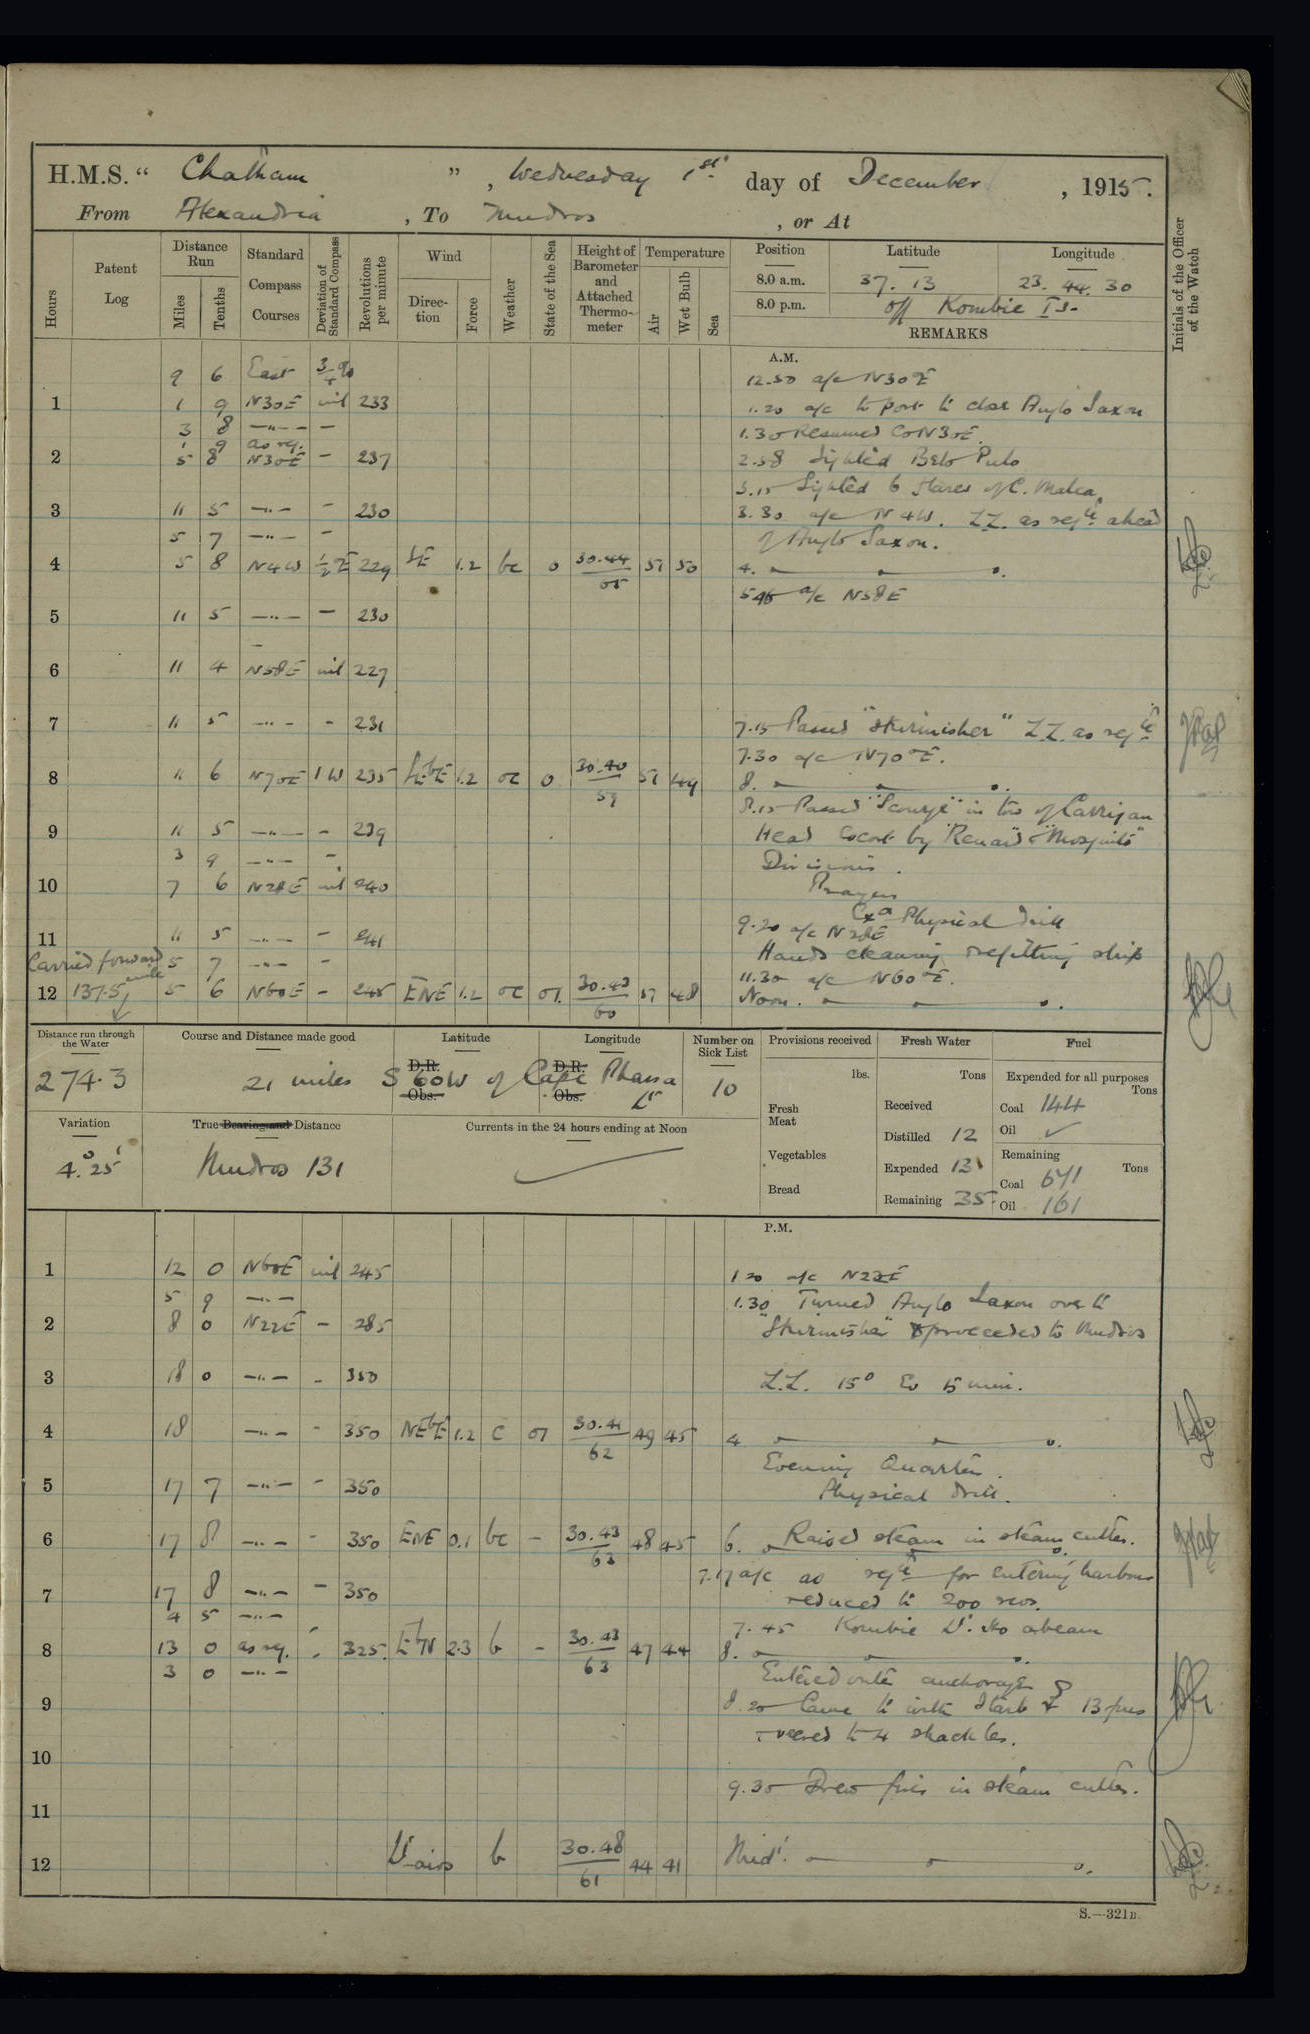 H.M.S. “ Chatham ” , Wednesday 1st day of December , 1915.
From Alexandria , To Mudros , or At
Hours
Patent Log
Distance Run
Miles
Tenths
Standard Compass Courses
Deviation of Standard Compass
Revolutions per minute
Wind
Direction
Force
Weather
State of the Sea
Height of Barometer and Attached Thermometer
Temperature
Air
Wet Bulb
Sea
Position
Latitude
Longitude
Initials of the Officer of the Watch
8.0 a.m. 37. 13 23. 44. 30
8.0 p.m. off Kombie Is.
REMARKS
A.M.
9 6 East
12.50 a/c N30E
1 1 9 N30E nil 233
1.20 a/c to port to clear Anglo Saxon
3 8 —"— –
1.30 Resumed Co N30E.
1 9 as req.
2 5 8 N30E – 237
2.58 Sighted Belo Pulo
3.15 Sighted 6 of C. Malea.
3 11 5 —"— – 230
3.30 a/c N4W. ZZ. as reqte ahead
5 7 —"— –
of Anglo Saxon.
4 5 8 N4W ½E 229 SE 1.2 bc 0 30.44/65 51 50
4.
5.45 a/c N58E
5 11 5 —"— – 230
6 11 4 N58E nil 227
7 11 5 —"— – 231
7.15 Passed "Skirmisher" ZZ. as reqte
7.30 a/c N70°E.
8 11 6 N70E 1W 235 SEbE 1.2 oc 0 30.40/59 51 49
8.
8.15 Passed "Scourge" in tow of Carrigan
9 11 5 —"— – 239
Head escort by "Renard" & "Mosquito"
3 9 —"— –
Divisions.
10 7 6 N28E nil 240
Prayers
Physical drill
9.20 a/c N28E
11 11 5 —"— – 241
Hands cleaning & refitting ship
Carried forward 5 7 —"— –
11.30 a/c N60°E.
12 137.5 mile 5 6 N60E – 245 ENE 1.2 oc 01. 30.43/60 51 48
Noon.
Distance run through the Water
Course and Distance made good
Latitude
Longitude
Number on Sick List
Provisions received
Fresh Water
Fuel
274.3
21 miles S 60W of Cape Phassa Lt
D.R.
Obs.
D.R.
Obs.
10
lbs.
Fresh Meat
Vegetables
Bread
Tons
Received
Distilled 12
Expended 13
Remaining 35
Expended for all purposes
Tons
Coal 144
Oil ✓
Remaining
Tons
Coal 671
Oil 161
Variation
True Bearing and Distance
Currents in the 24 hours ending at Noon
4.°25'
Mudros 131
P.M.
1 12 0 N60E nil 245
1.20 a/c N22E
5 9 —"—
1.30 Turned Anglo Saxon over to
2 8 0 N22E – 285
"Skirmisher" & proceeded to Mudros
3 18 0 —"— – 350
Z.Z. 15° Ev 15 min.
4 18 —"— – 350 NEbE 1.2 c 01 30.41/62 49 45
4
Evening Quarters.
5 17 7 —"— – 350
Physical drill.
6 17 8 —"— – 350 ENE 0.1 bc – 30.43/63 48 45
6. Raised steam in steam cutter.
7.17 a/c as reqte for entering harbour
7 17 8 —"— – 350
reduced to 200 revs.
4 5 —"—
7.45 Kombie Lt. Ho abeam
8 13 0 as req. 325 EbN 2.3 b – 30.43/63 47 44
8.
3 0 —"—
Entered outer anchorage &
9
8.20 Came to with Starb 13 fms
veered to 4 shackles.
10
9.30 Drew fires in steam cutter.
11
12 Lt airs b 30.48/61 44 41
Midt.
S.—321B.